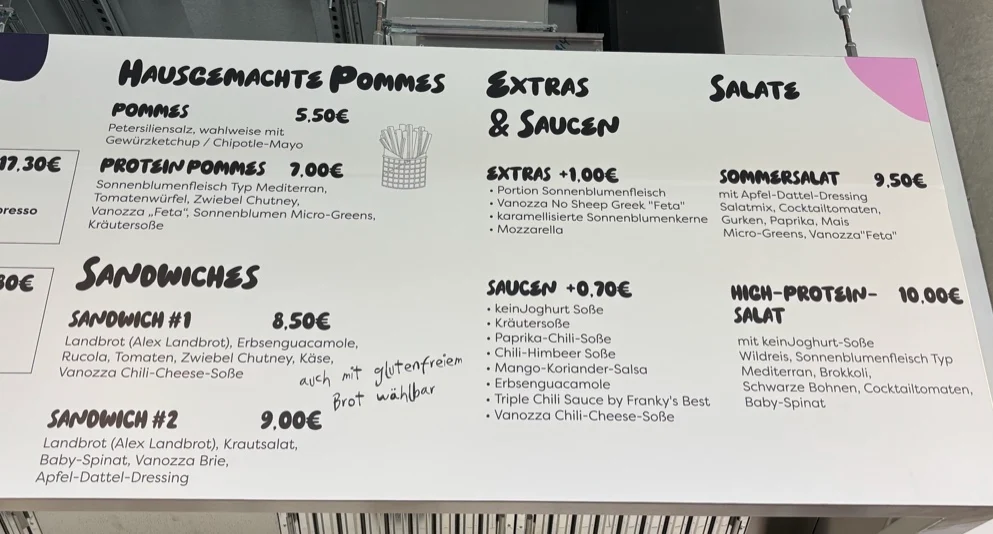 17.30€
presso
HAUSGEMACHTE POMMES
POMMES 5.50€
Petersiliensalz, wahlweise mit
Gewürzketchup / Chipotle-Mayo
PROTEIN POMMES 7.00€
Sonnenblumenfleisch Typ Mediterran,
Tomatenwürfel, Zwiebel Chutney,
Vanozza „Feta", Sonnenblumen Micro-Greens,
Kräutersoße
SANDWICHES
SANDWICH #1 8,50€
Landbrot (Alex Landbrot), Erbsenguacamole,
Rucola, Tomaten, Zwiebel Chutney, Käse,
Vanozza Chili-Cheese-Soße
auch mit glutenfreiem
Brot wählbar
SANDWICH #2 9.00€
Landbrot (Alex Landbrot), Krautsalat,
Baby-Spinat, Vanozza Brie,
Apfel-Dattel-Dressing
EXTRAS
& SAUCEN
EXTRAS +1,00€
• Portion Sonnenblumenfleisch
• Vanozza No Sheep Greek "Feta"
• karamellisierte Sonnenblumenkerne
• Mozzarella
SAUCEN +0,70€
• keinJoghurt Soße
• Kräutersoße
• Paprika-Chili-Soße
• Chili-Himbeer Soße
• Mango-Koriander-Salsa
• Erbsenguacamole
• Triple Chili Sauce by Franky's Best
• Vanozza Chili-Cheese-Soße
SALATE
SOMMERSALAT 9,50€
mit Apfel-Dattel-Dressing
Salatmix, Cocktailtomaten,
Gurken, Paprika, Mais
Micro-Greens, Vanozza"Feta"
HIGH-PROTEIN- 10,00€
SALAT
mit keinJoghurt-Soße
Wildreis, Sonnenblumenfleisch Typ
Mediterran, Brokkoli,
Schwarze Bohnen, Cocktailtomaten,
Baby-Spinat